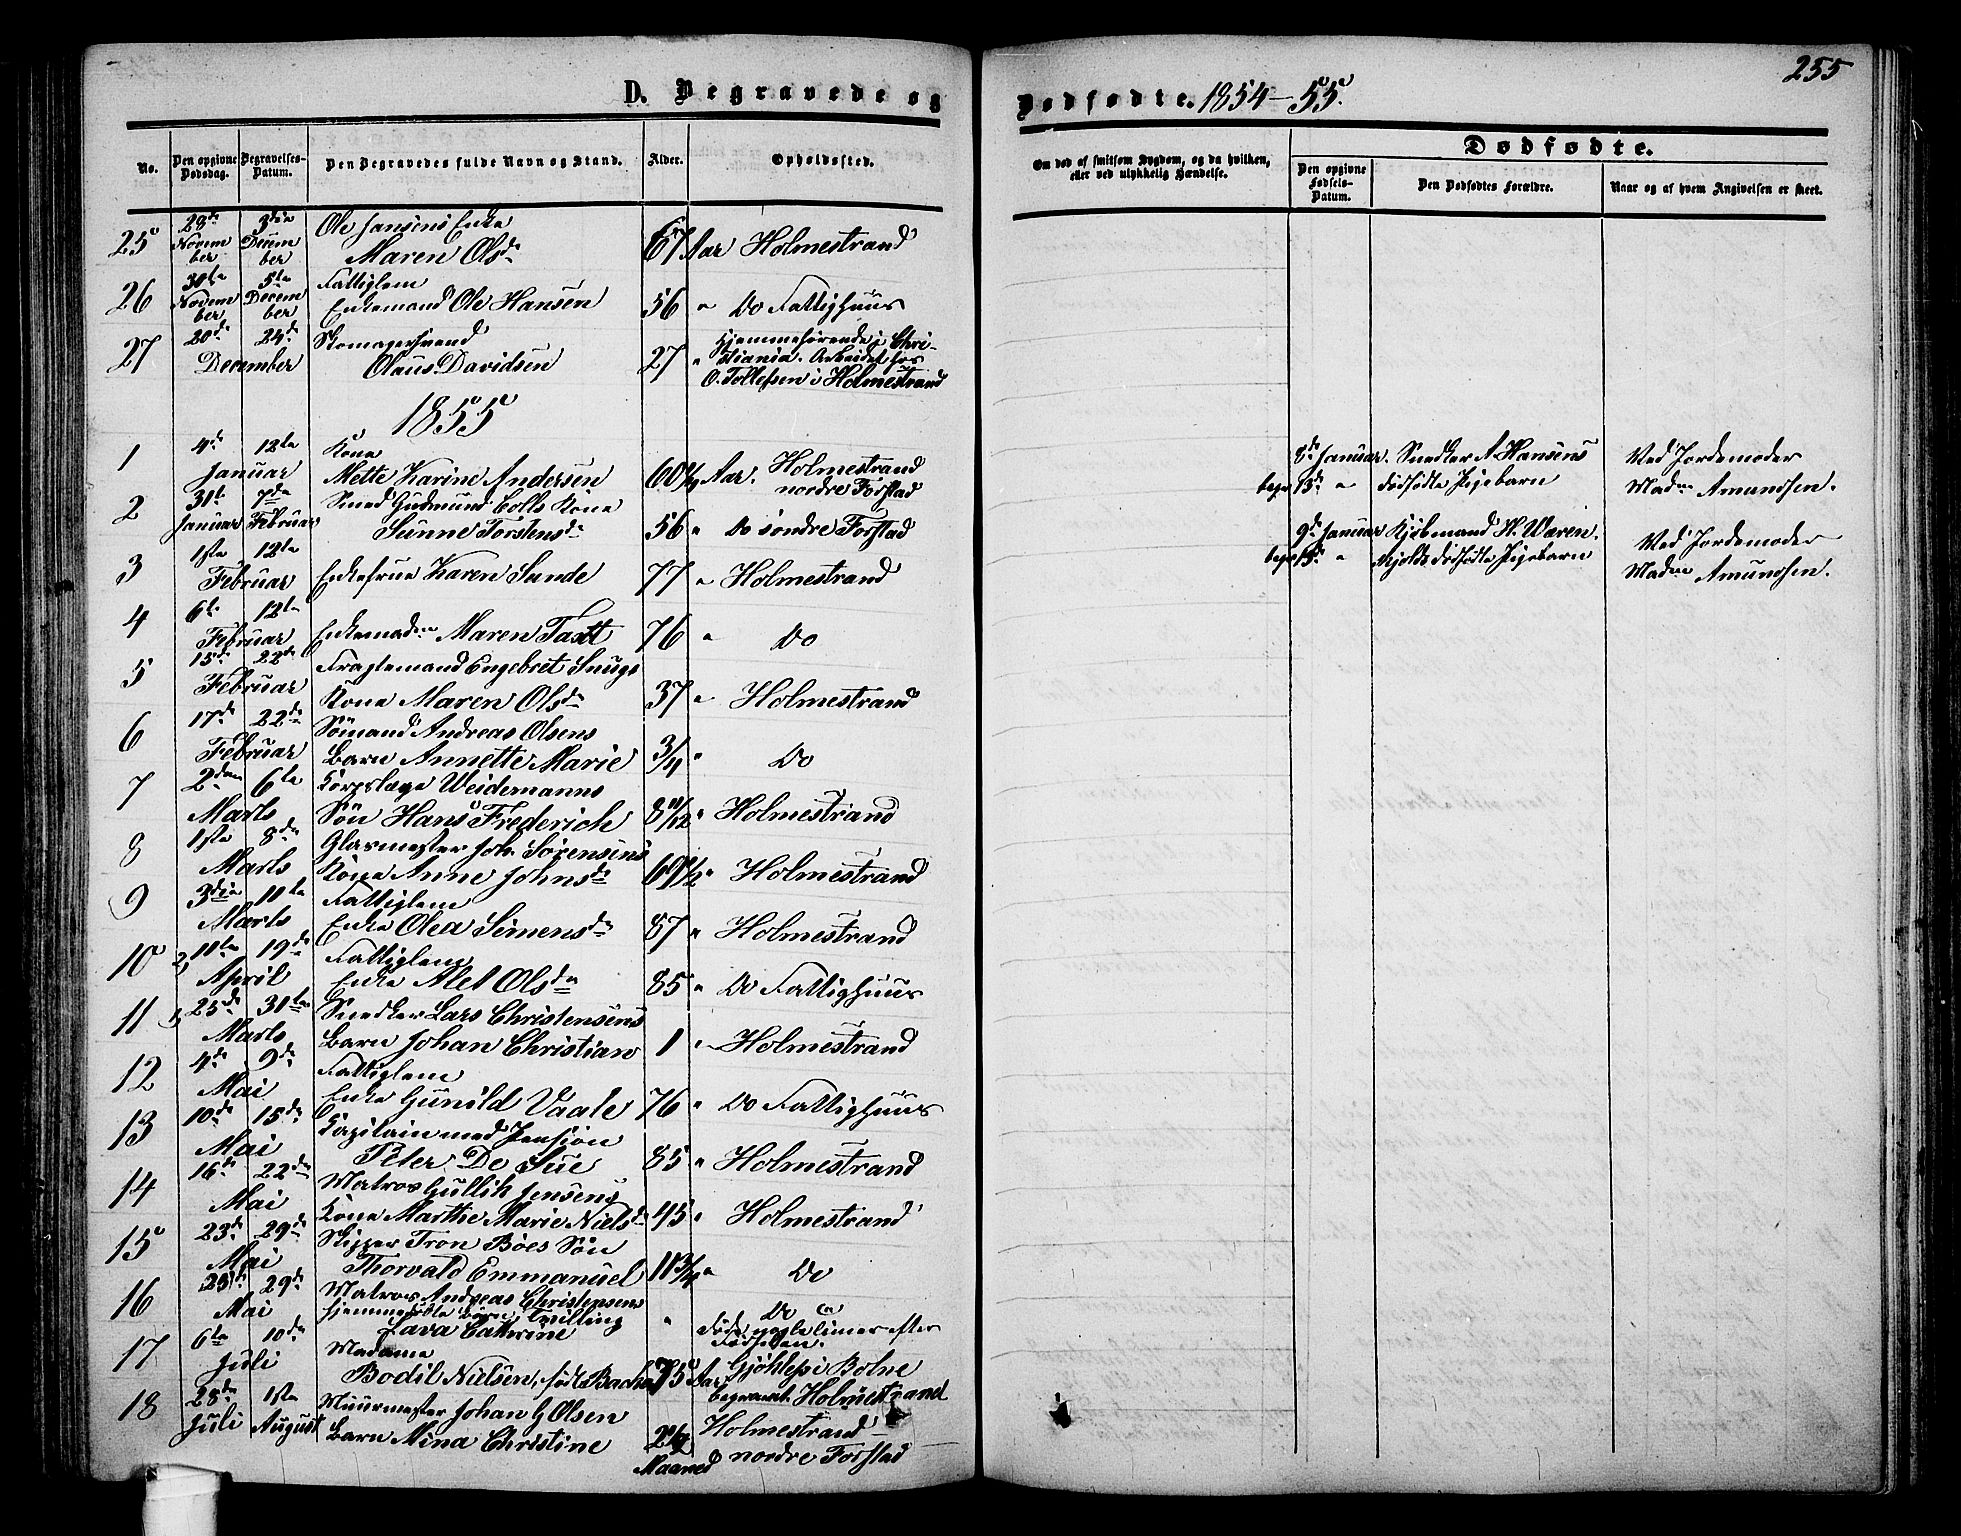 255
D. Begravede og
Dødfødte. 1854-55.
No.
Den opgivne Dødsdag.
Begravelses-Datum.
Den Begravedes fulde Navn og Stand.
Alder.
Opholdssted.
Om død af smitsom Sygdom, og da hvilken,
eller ved ulykkelig Hændelse.
Dødfødte.
Den opgivne Fødsels-Datum.
Den Dødfødtes Forældre.
Naar og af hvem Angivelsen er skeet.
25 29de November 3die December Ole Jansens Enke
Maren Olsd. 67 Aar Holmestrand
26 30te November 5te December Fattiglem
Enkemand Ole Hansen 56 " Do Fattighuus
27 20de 24de December Skomagersvend
Olaus Davidsen 27 " Hjemmehørende i Christiania. Arbeidet hos
O. Tollefsen i Holmestrand
1855
1 4de 12te Januar Kone
Mette Karine Andersen 60 Aar. Holmestrand
nordre Forstad
2 31te Januar 7de Februar Smed Gudmund Colls Kone
Sünne Torstensd. 56 " Do söndre Forstad
3 1ste 12te Februar Enkefrue Karen Sande 77 " Holmestrand
4 6te 12te Februar Enkemadme Maren Taxt 76 " Do
5 15de 22de Februar Fragtemand Engebret Snugs
Kone Maren Olsd. 37 " Holmestrand
6 17de 22de Februar Sömand Andreas Olsens
Barn Annette Marie 3/4 " Do
7 2den 6te Marts Korpslæge Weidemanns
Sön Hans Frederich 8 11/12 " Holmestrand
8 1ste 8de Marts Glarmester Joh. Sörensens
Kone Anne Johnsd. 69 1/2 " Holmestrand
9 3die 10te Marts Fattiglem
Enke Olea Simensd. 87 " Holmestrand
10 11te 19de April Fattiglem
Enke Alet Olsd. 85 " Do Fattighuus
11 25de 31te Marts Snedker Lars Christensens
Barn Johan Christian 1 " Holmestrand
12 4de 9de Mai Fattiglem
Enke Gunild Vaale 76 " Do Fattighuus
13 10de 15de Mai Capitain med Pension
Peter De Sue 85 " Holmestrand
14 16de 22de Mai Matros Gullik Jensens
Kone Marthe Marie Nielsd. 45 " Holmestrand
15 23de 29de Mai Skipper Tron Böes Sön
Thorvald Emmanuel 10 3/4 " Do
16 29de Mai Matros Andreas Christensens
hjemmedöbte Barn, Tvilling
Lava Cathrine " Do
Døde nogle Timer efter
Fødselen.
17 6te 10de Juli Madame
Bodil Nielsen, född Bache 75 Aar Gjöklep i Botne
begravet. Holmestrand
18 28de Juli 1ste August Muurmester Johan G Olsen
Barn Mina Christine 2 1/2 Maaned Holmestrand
nordre Forstad
8de Januar. Snedker A Hansens
begr 13de " dödfödte Pigebarn
Ved Jordemoder
Madme Amundsen.
9de Januar Kjöbmand H. Wæren-
begr 13de " skjolds dödfödte Pigebarn
Ved Jordemoder
Madme Amundsen.